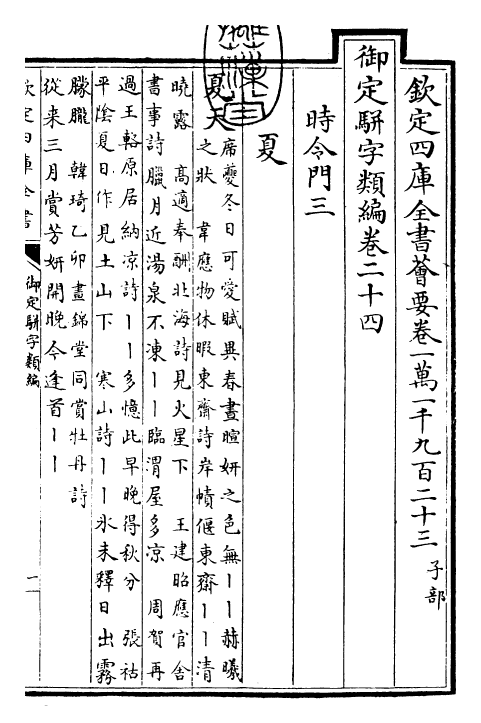 欽定四庫全書薈要卷一萬一千九百二十三 子部
御定駢字類編卷二十四
時令門三
夏
夏天
席夔冬日可愛賦異春晝暄妍之色無丨丨赫曦
之狀 韋應物休暇東齋詩岸幘偃東齋丨丨清
曉露 高適奉酬北海詩見火星下 王建昭應官舍
書事詩臘月近湯泉不凍丨丨臨渭屋多凉 周賀再
過王輅原居納凉詩丨丨多憶此早晚得秋分 張祜
平陰夏日作見土山下 寒山詩丨丨氷未釋日出霧
朦朧 韓琦乙卯晝錦堂同賞牡丹詩
從来三月賞芳妍開晚今逢首丨丨
欽定四庫全書
御定駢字類編
一